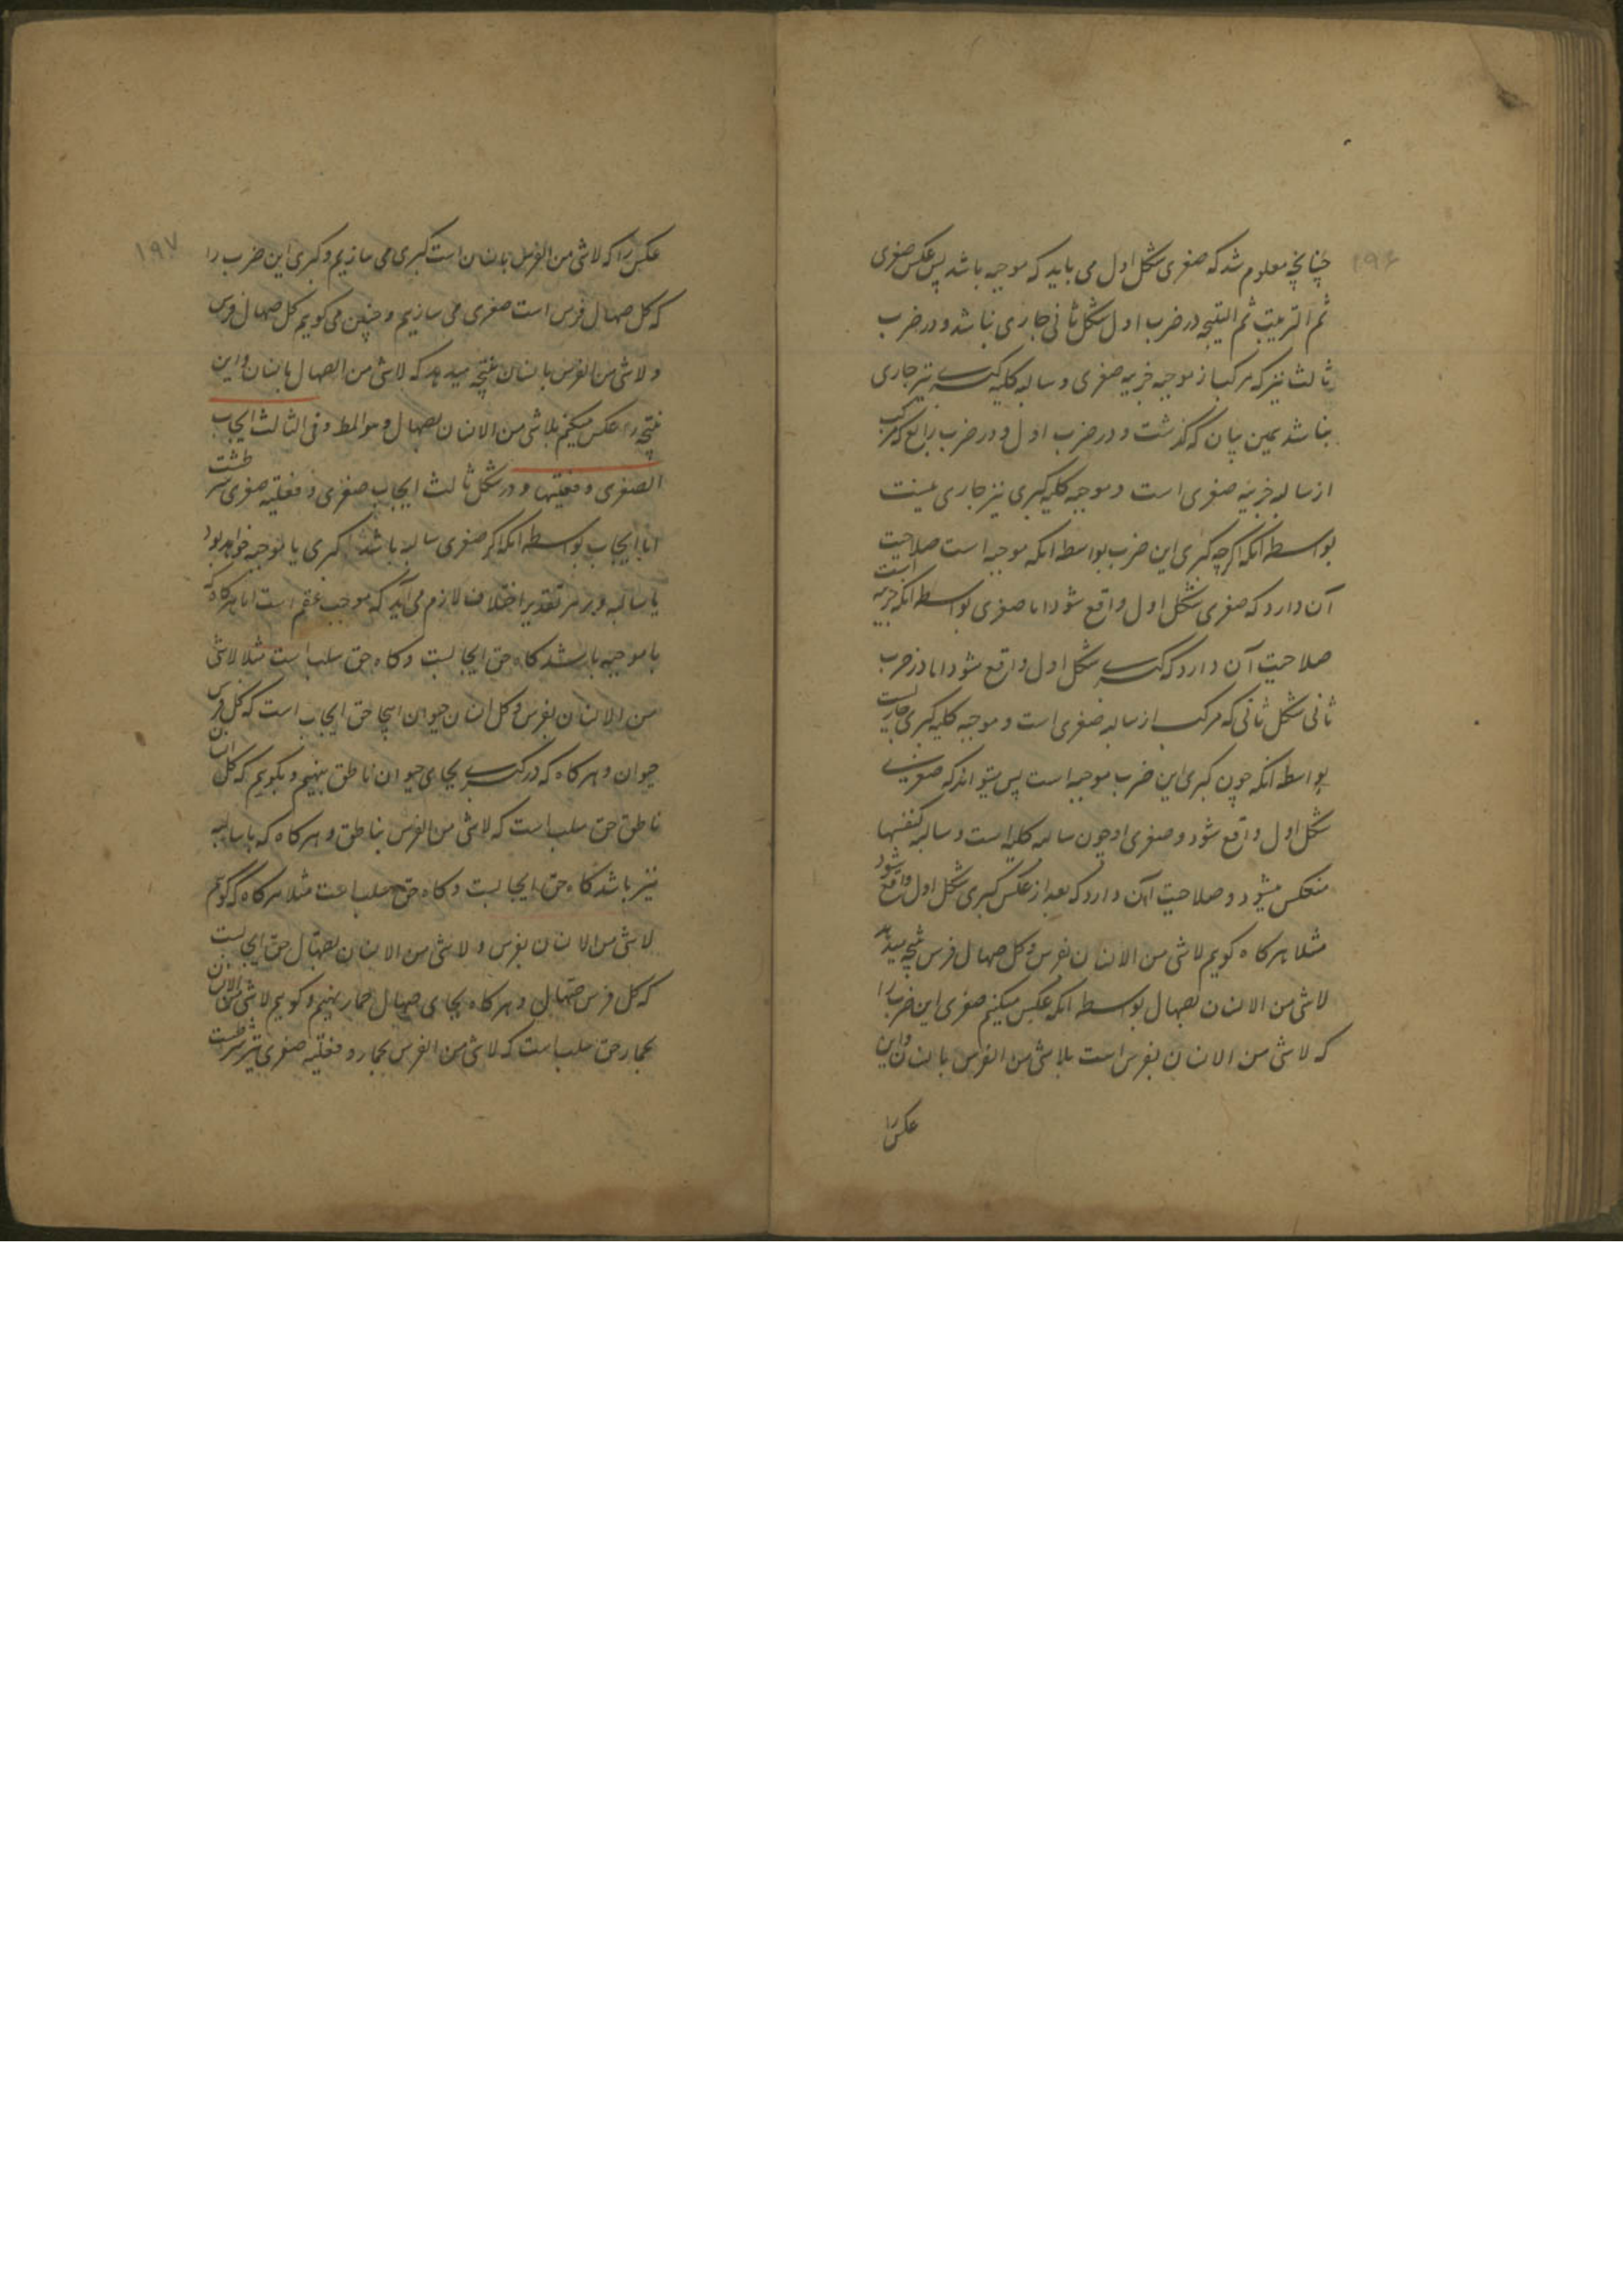 ۱۹۶
چنانچه معلوم شد که صغری شکل اول می باید که موجبه باشد پس عکس صغری
ثم الترتیب ثم النتیجه در ضرب اول شکل ثانی جاری نباشد و در ضرب
ثالث نیز که مرکب از موجبه جزییه صغری و سالبه کلیه کبری نیز جاری
نباشد بهمین بیان که گذشت و در ضرب اول و در ضرب رابع که مرکب
از سالبه جزییه صغری است و موجبه کلیه کبری نیز جاری نیست
بواسطه آنکه اگرچه کبری این ضرب بواسطه آنکه موجبه است صلاحیت
آن دارد که صغری شکل اول واقع شود اما صغری بواسطه آنکه جزییه است
صلاحیت آن دارد که کبری شکل اول واقع شود اما در ضرب
ثانی شکل ثانی که مرکب از سالبه صغری است و موجبه کلیه کبری جاریست
بواسطه آنکه چون کبری این ضرب موجبه است پس میتواند که صغری
شکل اول واقع شود و صغری او چون سالبه کلیه است و سالبه کنفسها
منعکس میشود و صلاحیت آن دارد که بعد از عکس کبری شکل اول واقع شود
مثلا هرگاه گویم لاشی من الانسان بفرس و کل صهال فرس نتیجه میدهد
لاشی من الانسان بصهال بواسطه آنکه عکس میکنیم صغری این ضرب را
که لاشی من الانسان بفرس است بلاشی من الفرس بانسان و این
عکس را
۱۹۷
عکس را که لاشی من الفرس بانسان است کبری می سازیم و کبری این ضرب را
که کل صهال فرس است صغری می سازیم و چنین می گویم کل صهال فرس
و لاشی من الفرس بانسان نتیجه میدهد که لاشی من الصهال بانسان و این
نتیجه را عکس میکنیم بلاشی من الانسان بصهال و هو المط و فی الثالث ایجاب
الصغری و فعلیتها و در شکل ثالث ایجاب صغری و فعلیه صغری شرطست
اما ایجاب بواسطه آنکه اگر صغری سالبه باشد کبری یا موجبه خواهد بود
یا سالبه و بر هر تقدیر اختلاف لازم می آید که موجب عقم است اما هرگاه که
با موجبه باشد گاه حق ایجابست و گاه حق سلب است مثلا لاشی
من الانسان بفرس و کل انسان حیوان اینجا حق ایجاب است که کل فرس
حیوان و هرگاه که در کبری بجای حیوان ناطق بنهیم و بگویم که کل انسان
ناطق حق سلب است که لاشی من الفرس بناطق و هرگاه که با سالبه
نیز باشد گاه حق ایجابست و گاه حق سلب است مثلا هرگاه که گویم
لاشی من الانسان بفرس و لاشی من الانسان بصهال حق ایجابست
که کل فرس صهال و هرگاه بجای صهال حمار بنهیم و گویم لاشی من الانسان
بحمار حق سلب است که لاشی من الفرس بحمار و فعلیه صغری نیز شرطست